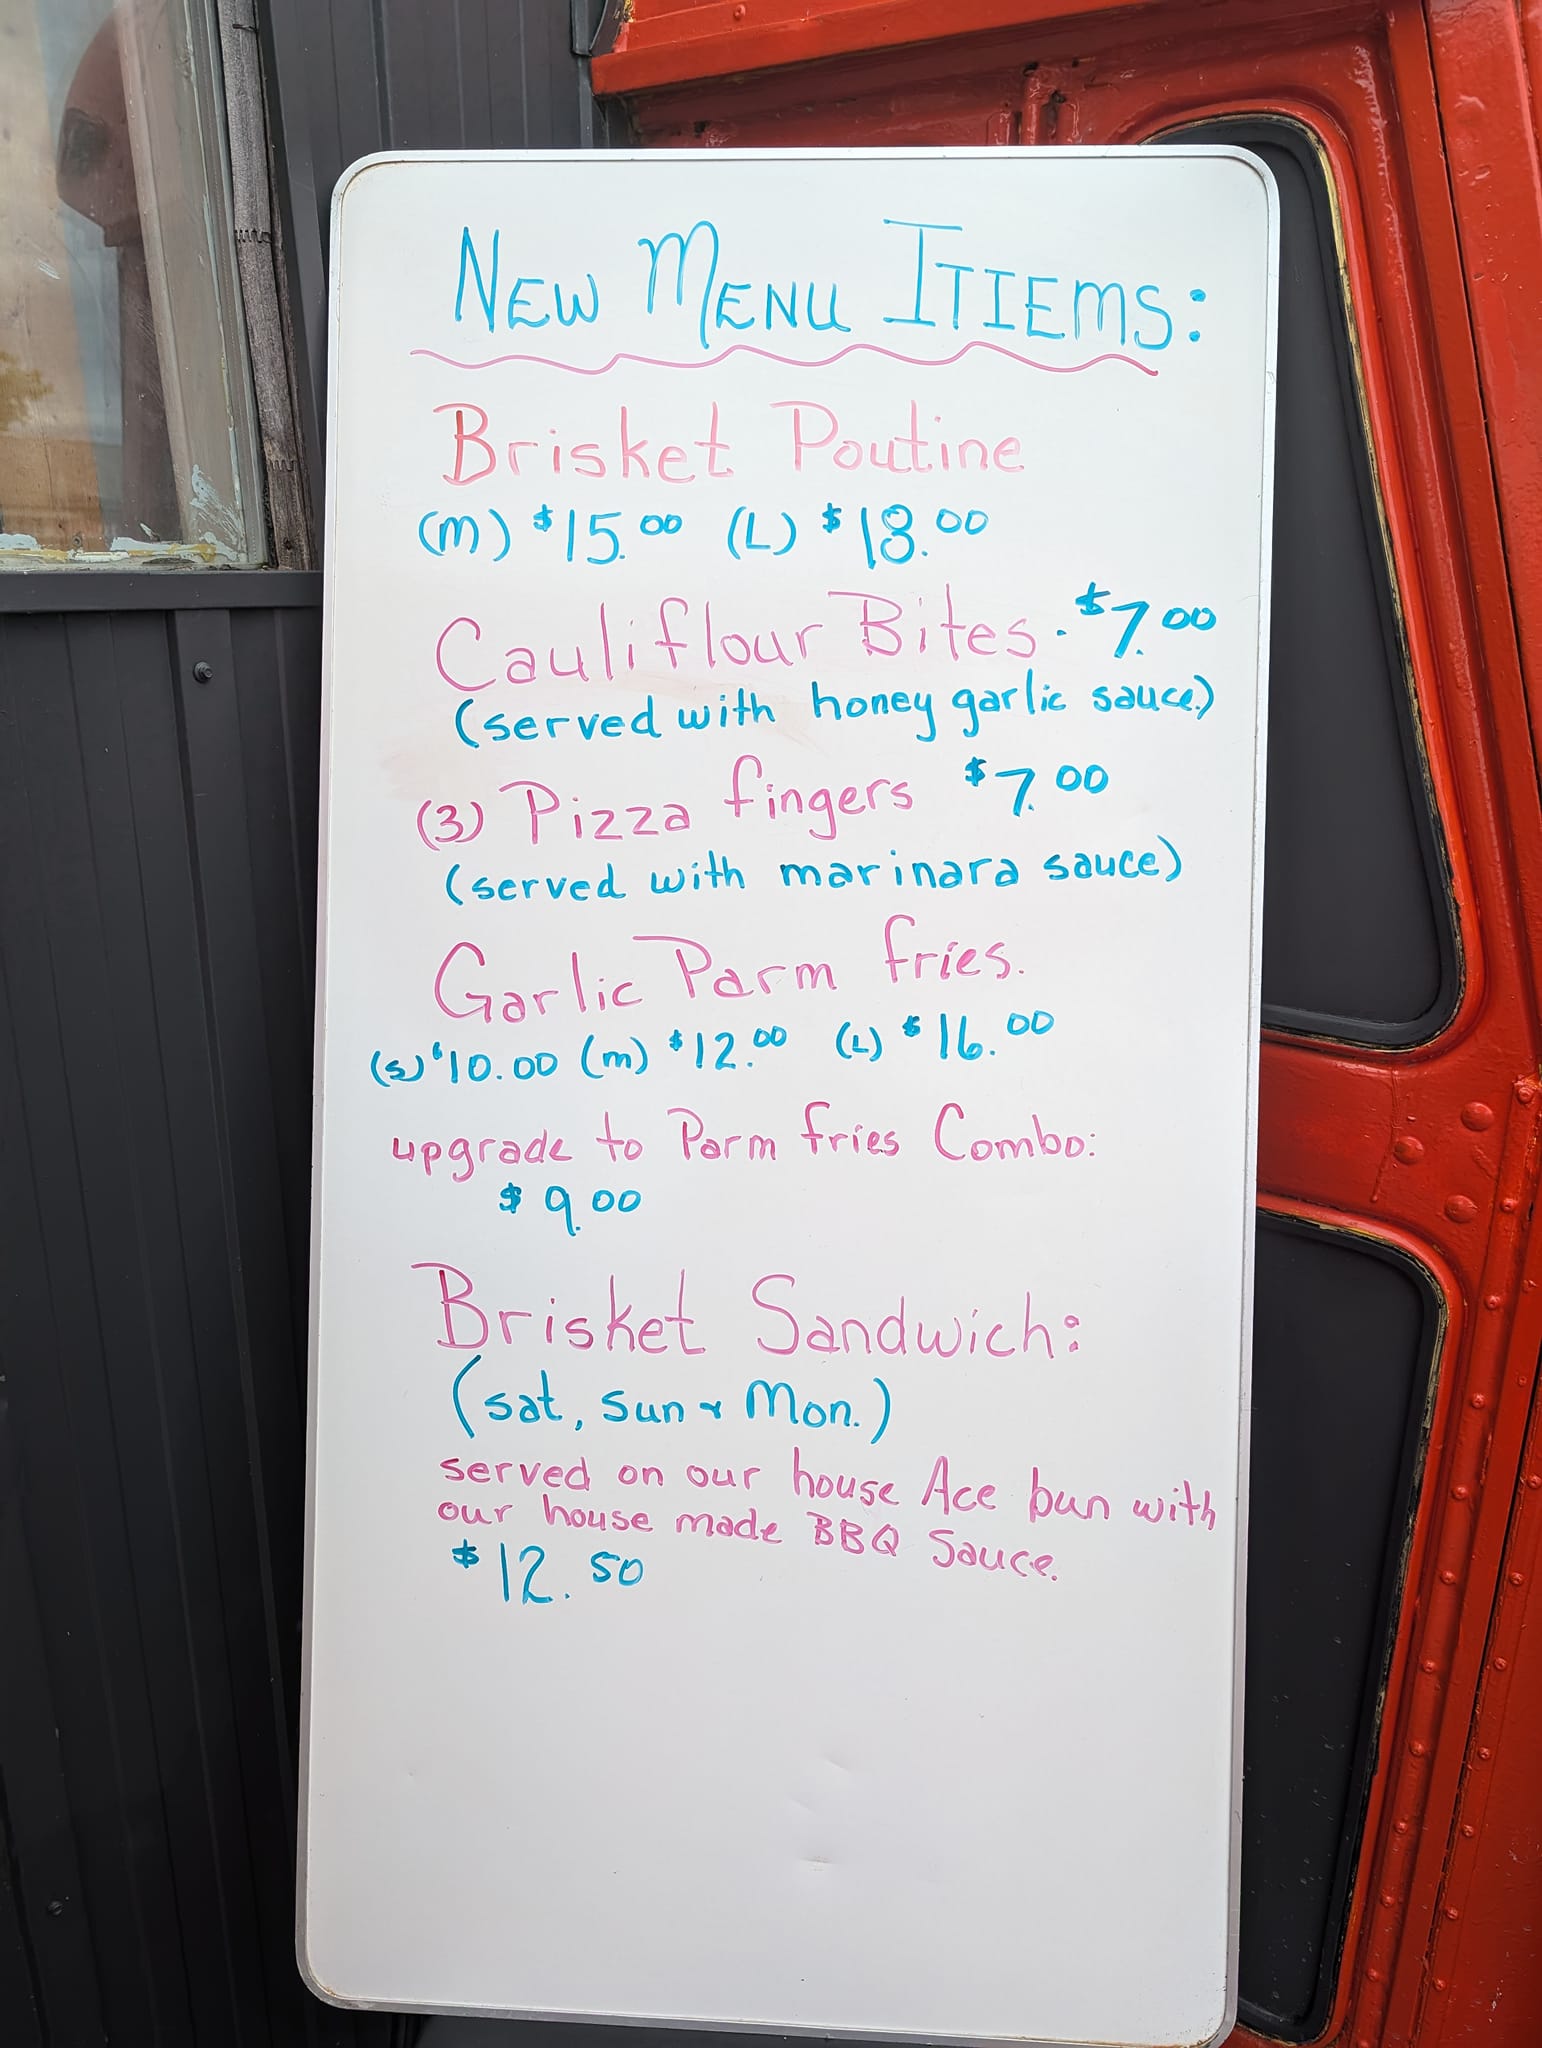 NEW MENU ITIEMS:
Brisket Poutine
(m) $15.00 (L) $18.00
Cauliflour Bites. $7.00
(served with honey garlic sauce.)
(3) Pizza fingers $7.00
(served with marinara sauce)
Garlic Parm fries.
(s) $10.00 (m) $12.00 (L) $16.00
upgrade to Parm fries Combo:
$9.00
Brisket Sandwich:
(sat, sun & Mon.)
served on our house Ace bun with
our house made BBQ Sauce.
$12.50